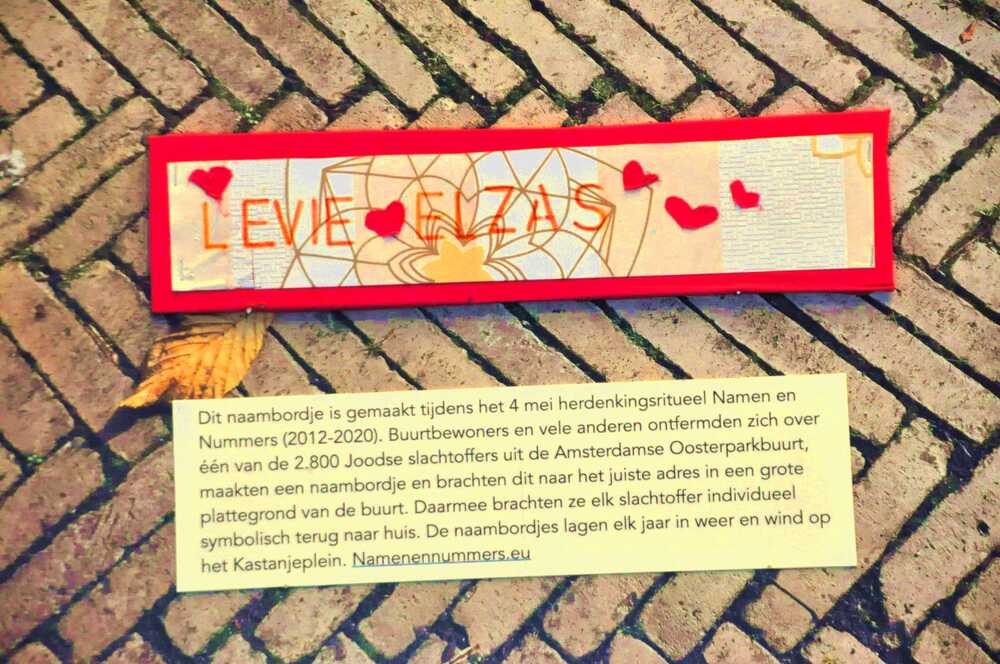 LEVIE ELZAS
Dit naambordje is gemaakt tijdens het 4 mei herdenkingsritueel Namen en
Nummers (2012-2020). Buurtbewoners en vele anderen ontfermden zich over
één van de 2.800 Joodse slachtoffers uit de Amsterdamse Oosterparkbuurt,
maakten een naambordje en brachten dit naar het juiste adres in een grote
plattegrond van de buurt. Daarmee brachten ze elk slachtoffer individueel
symbolisch terug naar huis. De naambordjes lagen elk jaar in weer en wind op
het Kastanjeplein. Namenennummers.eu